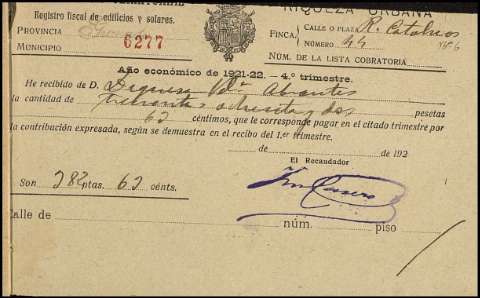 Registro fiscal de edificios y solares.
RIQUEZA URBANA
PROVINCIA
CALLE O PLAZA R. Catolicos
FINCA,
MUNICIPIO
6277
NÚMERO 44
NÚM. DE LA LISTA COBRATORIA
Año económico de 1921-22. — 4.º trimestre.
He recibido de D. Duquesa Vda Abrantes
la cantidad de doscientas ochenta y dos pesetas
62 céntimos, que le corresponde pagar en el citado trimestre por
la contribución expresada, según se demuestra en el recibo del 1.er trimestre.
de de 192
El Recaudador
Son 282 ptas. 62 cénts.
Calle de núm. piso